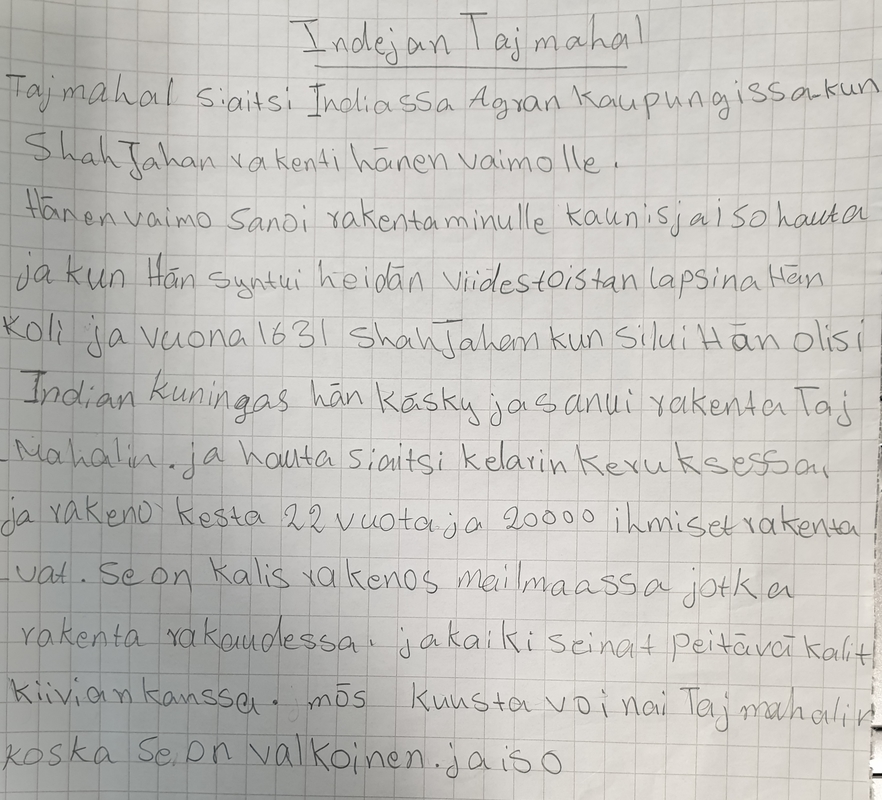 Indejan Tajmahal
Tajmahal siaitsi Indiassa Agran kaupungissa kun
Shah Jahan rakenti hänen vaimolle.
Hänen vaimo sanoi rakenta minulle kaunis ja iso hauta
ja kun Hän syntui heidän viidestoistan lapsina Hän
koli ja vuona 1631 Shah Jahem kun silui Hän olisi
Indian kuningas hän käsky ja sanui rakenta Taj
Mahalin. ja hauta siaitsi kelarin keruksessa
ja rakeno kesta 22 vuota ja 20000 ihmiset rakenta
vat. Se on kalis rakenos mailmaassa jotka
rakenta rakaudessa. ja kaiki seinat peitävä kalit
kiivian kanssa. mös kuusta voi nai Tajmahalin
koska se on valkoinen. ja iso